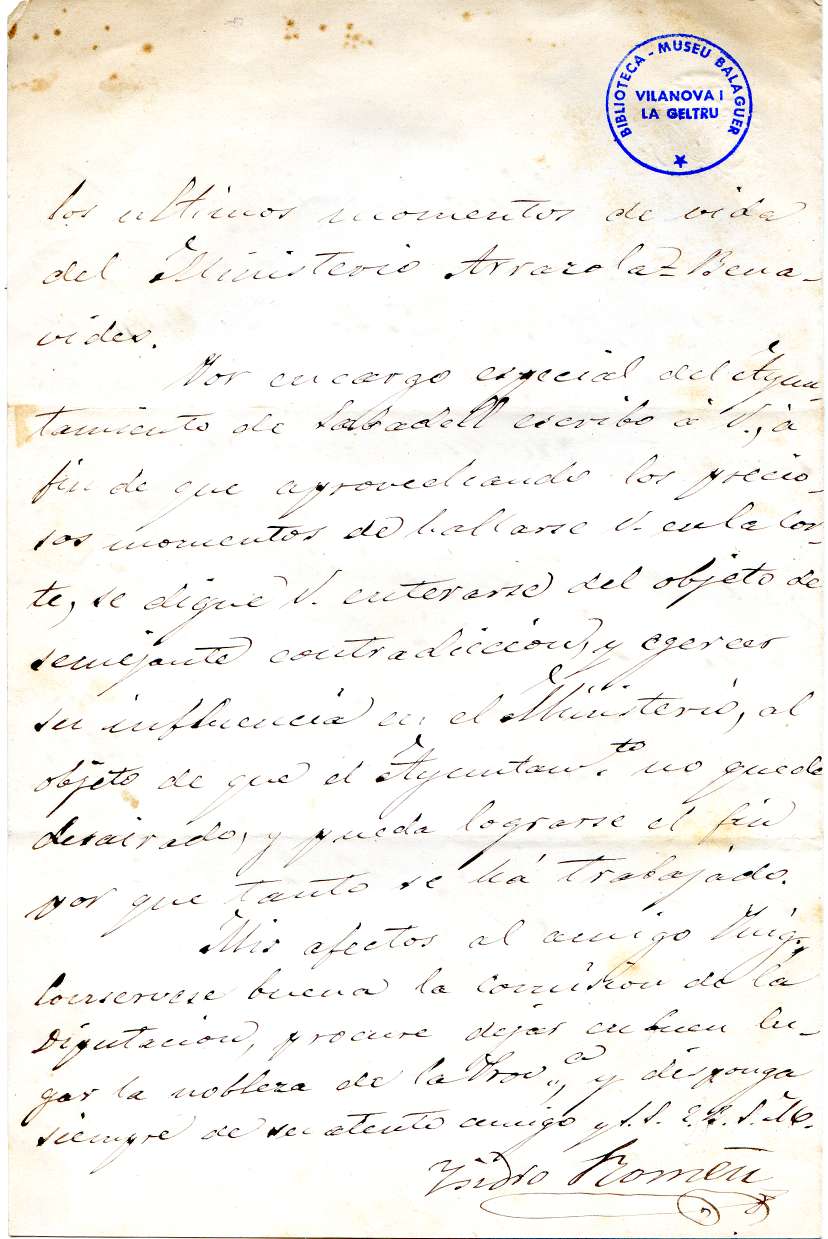 BIBLIOTECA - MUSEU BALAGUER
VILANOVA I
LA GELTRU
los ultimos momentos de vida
del Ministerio Arrazola=Bena-
vides.
Por encargo especial del Ayun-
tamiento de Sabadell escribo á V., á
fin de que aprovechando los precio-
sos momentos de hallarse V. en la Cor-
te, se digne V. enterarse del objeto de
semejante contradiccion, y egercer
su influencia en el Ministerio, al
objeto de que el Ayuntam.to no quede
desairado, y pueda lograrse el fin
por que tanto se há trabajado.
Mis afectos al amigo Puig,
conservese buena la comision de la
Diputacion, procure dejar en buen lu-
gar la nobleza de la Prov.a, y disponga
siempre de su atento amigo y S.S. Q.B.S.M.
Ysidro Romeu